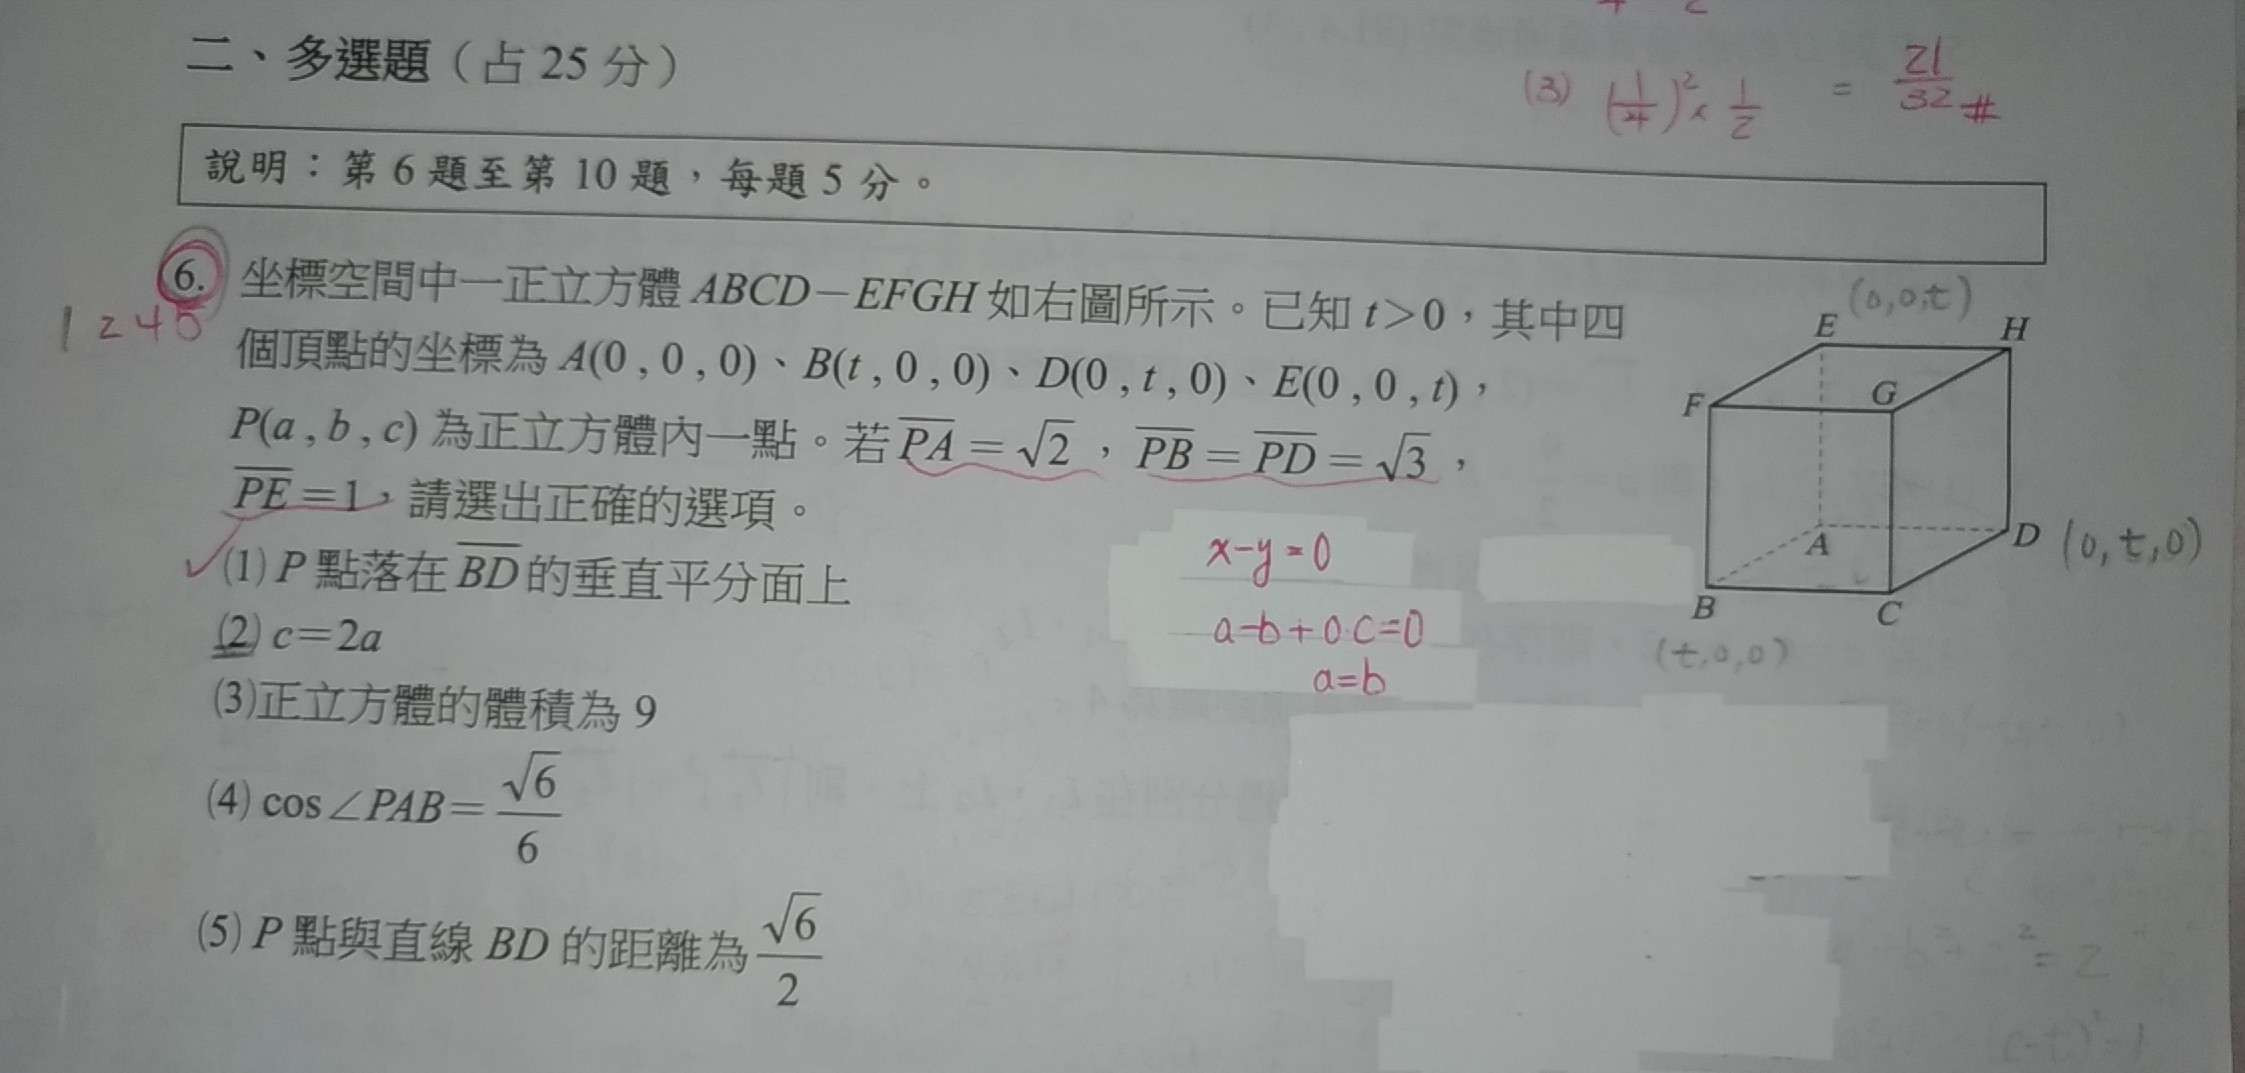 二、多選題（占 25 分）
(3) (1/4)² × 1/2 = 21/32 #
說明：第 6 題至第 10 題，每題 5 分。
6. 坐標空間中一正立方體 ABCD－EFGH 如右圖所示。已知 t＞0，其中四
1 2 4 5
個頂點的坐標為 A(0 , 0 , 0)、B(t , 0 , 0)、D(0 , t , 0)、E(0 , 0 , t)，
P(a , b , c) 為正立方體內一點。若 \overline{PA}＝√2，\overline{PB}＝\overline{PD}＝√3，
\overline{PE}＝1，請選出正確的選項。
(1) P 點落在 \overline{BD} 的垂直平分面上
(2) c＝2a
(3)正立方體的體積為 9
(4) cos∠PAB＝√6/6
(5) P 點與直線 BD 的距離為 √6/2
x-y=0
a-b+0·c=0
a=b
(0,0,t)
E
H
F
G
A
D (0,t,0)
B
C
(t,0,0)
² = 2